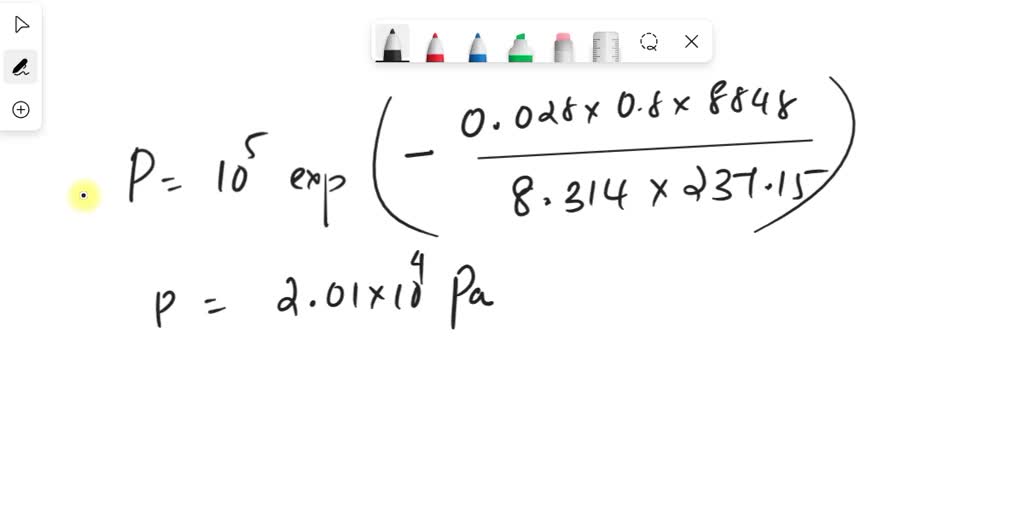 P = 10^5 exp ( - (0.028 × 0.8 × 8848) / (8.314 × 237.15) )
P = 2.01 × 10^4 Pa